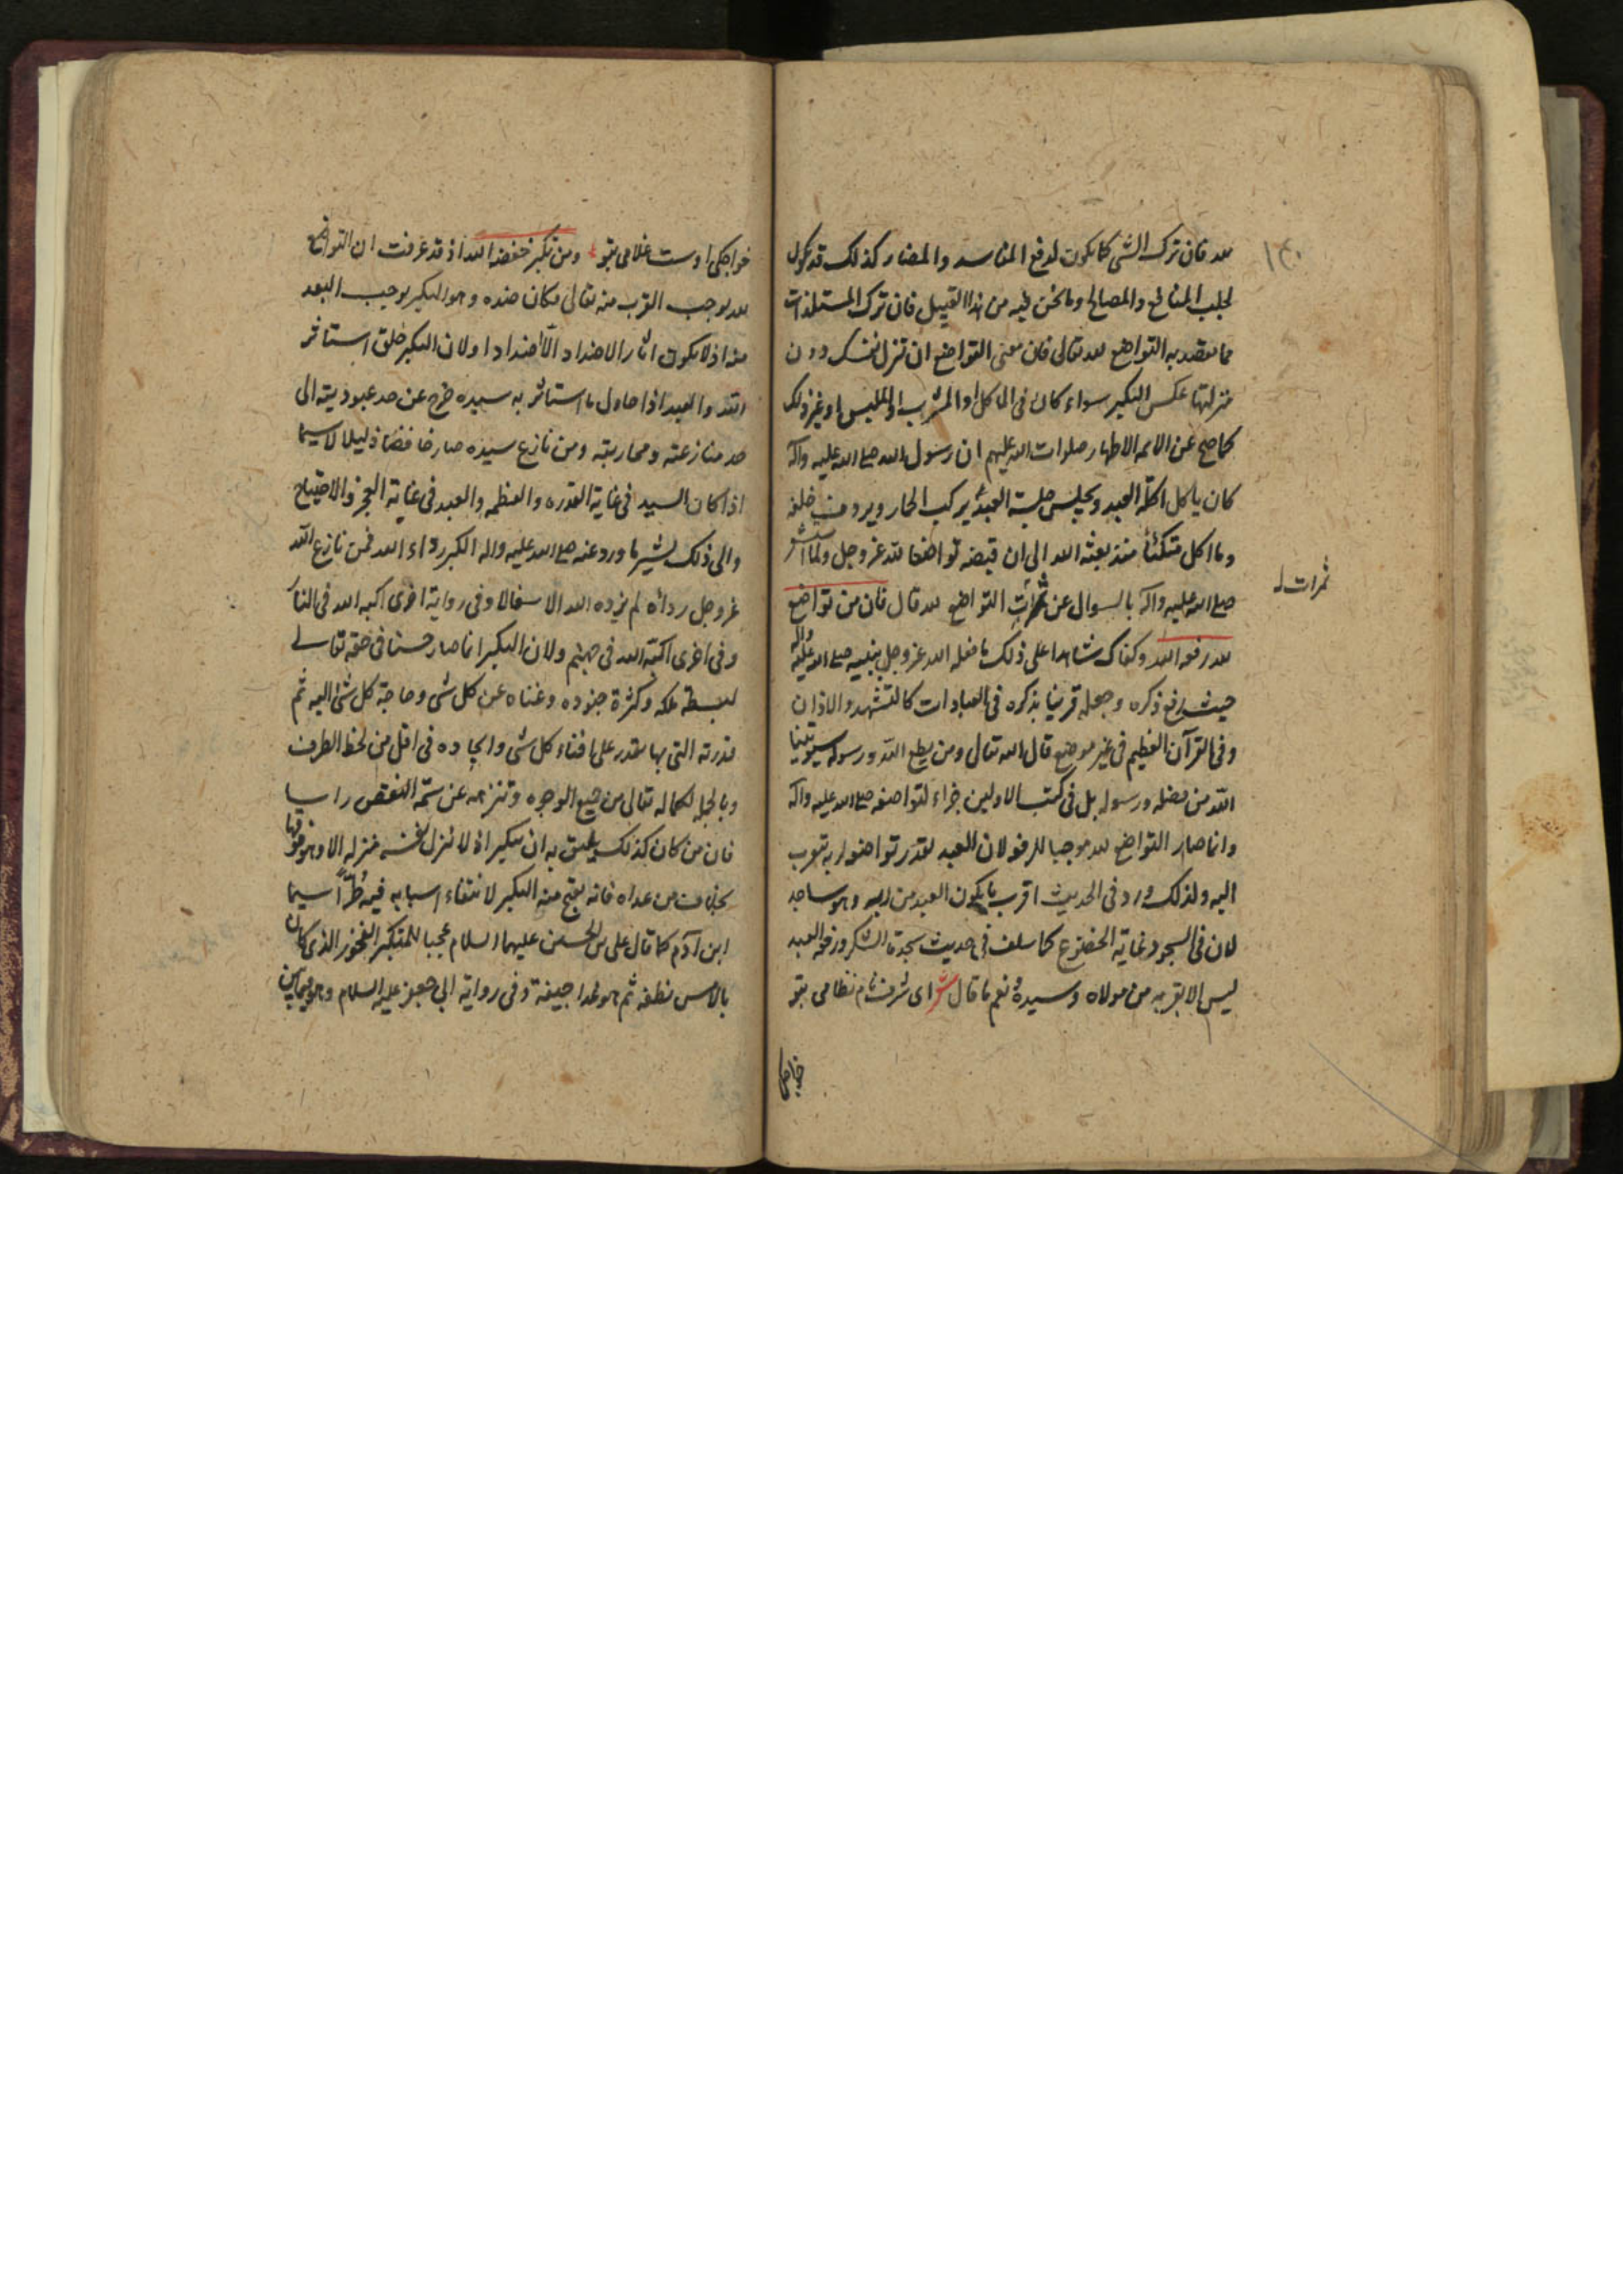 ١٣٠
لله فان ترك الشی كما يكون لدفع المفاسد والمضار كذلك قد يكون
لجلب المنافع والمصالح وما نحن فيه من هذا القبيل فان ترك المستلذات
مما يقصد به التواضع لله تعالى فان معنى التواضع ان تنزل نفسك دون
منزلتها عكس التكبر سواء كان فى الماكل او المشرب او الملبس او غير ذلك
كما صح عن الائمه الاطهار صلوات الله عليهم ان رسول الله صلى الله عليه واله
كان ياكل اكلة العبد ويجلس جلسة العبد يركب الحمار ويردف خلفه
وما اكل متكئا منذ بعثه الله الى ان قبضه تواضعا لله عز وجل ولما استشعر
صلى الله عليه واله بالسوال عن ثمرات التواضع لله قال فان من تواضع
ثمرات
لله رفعه الله وكفاك شاهدا على ذلك ما فعله الله عز وجل بنبيه صلى الله عليه واله
حيث رفع ذكره وجعله قرينا بذكره فى العبادات كالتشهد والاذان
وفى القرآن العظيم فى غير موضع قال الله تعالى ومن يطع الله ورسوله سيوتينا
الله من فضله ورسوله بل فى كتب الاولين جزاء لتواضعه صلى الله عليه واله
وانما صار التواضع لله موجبا للرفع لان العبد بقدر تواضعه لربه يتقرب
اليه ولذلك ورد فى الحديث اقرب ما يكون العبد من ربه وهو ساجد
لان فى السجود غاية الخضوع كما سلف فى حديث سجدة الشكر ورفعة العبد
ليس الا بقربه من مولاه وسيده ونعم ما قال شعر ای شرف نام نظامی بتو
خواجگی
خواجگی اوست غلامی بتو ومن تكبر خفضه الله اذ قد عرفت ان التواضع
لله يوجب القرب منه تعالى فكان ضده وهو التكبر يوجب البعد
منه اذ لا يكون اثار الاضداد الا اضدادا ولان التكبر خلق استاثر
الله والعبد اذا حاول ما استاثر به سيده خرج عن حد عبوديته الى
حد منازعته ومحاربته ومن نازع سيده صار خافضا ذليلا لا سيما
اذا كان السيد فى غاية القدره والعظمه والعبد فى غاية العجز والاحتياج
والى ذلك يشير ما ورد عنه صلى الله عليه واله الكبر رداء الله فمن نازع الله
عز وجل ردائه لم يزده الله الا سفالا وفى رواية اخرى اكبه الله فى النار
وفى اخرى اكبه الله فى جهنم ولان التكبر انما صار حسنا فى حقه تعالى
لبسطة ملكه وكثرة جنوده وغناه عن كل شی وحاجة كل شئ اليه ثم
قدرته التى بها يقدر على افناء كل شی وايجاده فى اقل من لحظ الطرف
وبالجمله لكماله تعالى من جميع الوجوه وتنزهه عن سمة النقص راسا
فان من كان كذلك يليق به ان يتكبر اذ لا ينزل نفسه منزله الا وهو فوقها
بخلاف من عداه فانه يقبح منه التكبر لانتفاء اسبابه فيه طرا سيما
ابن آدم كما قال على بن الحسين عليهما السلام عجبا للمتكبر الفخور الذى كان
بالامس نطفه ثم هو غدا جيفة وفى رواية ابى جعفر عليه السلام وهو فيما بين